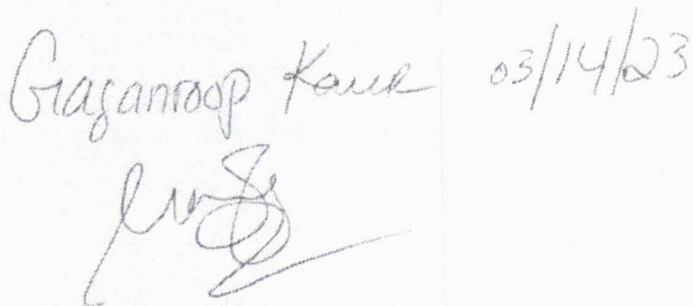 Gaganroop Kaur 03/14/23